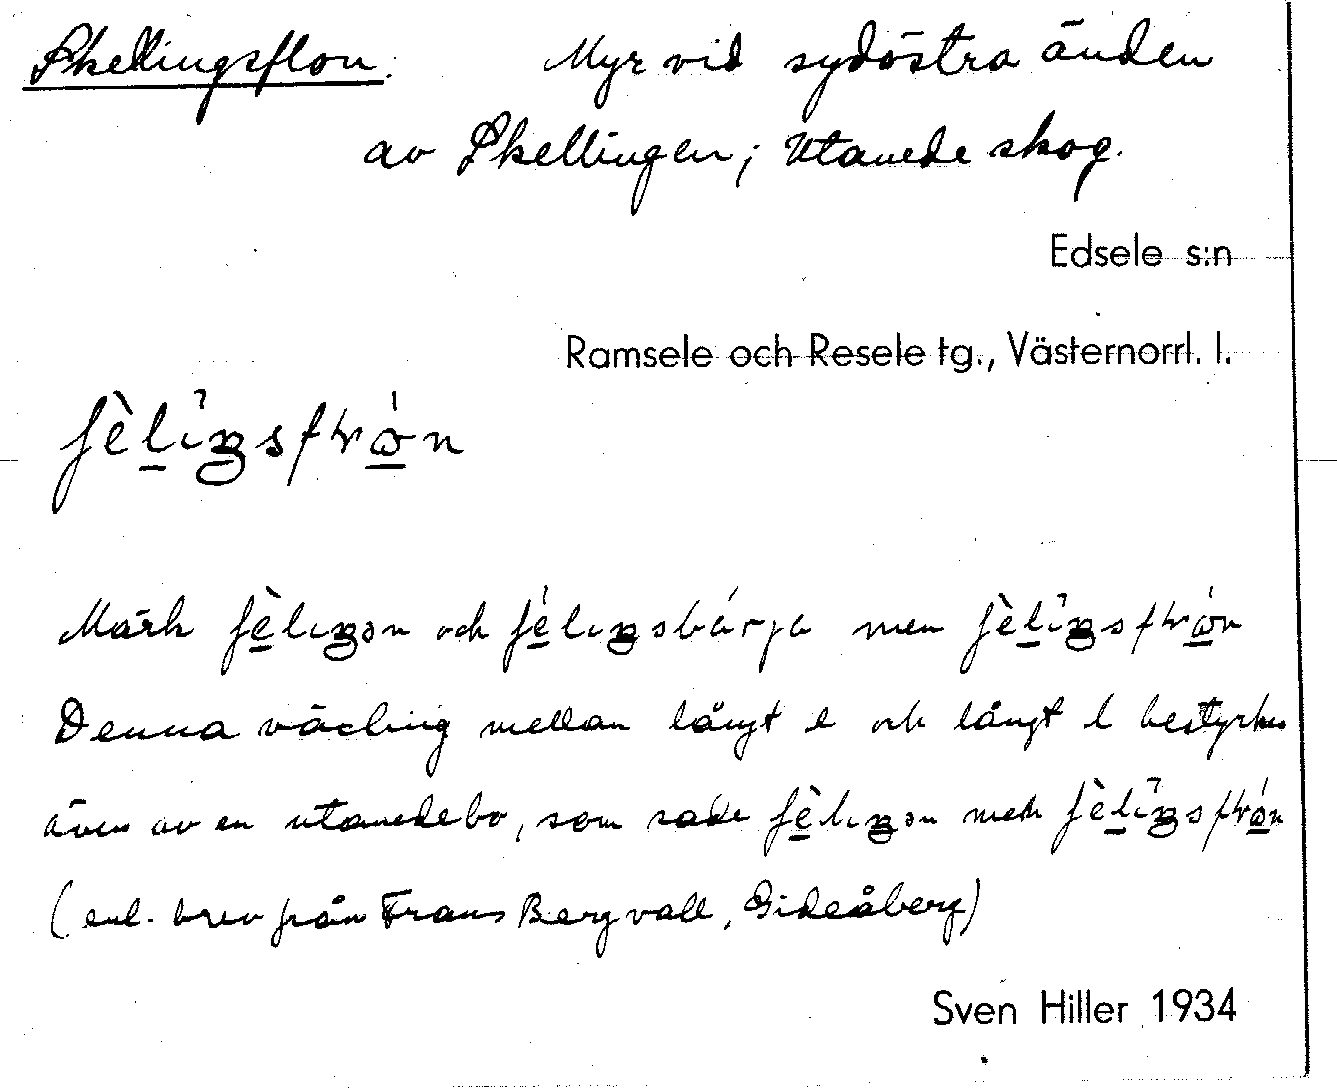 Skellingsflon. Myr vid sydöstra änden
av Skellingen; Utanede skog.
Edsele s:n
Ramsele och Resele tg., Västernorrl. l.
Märk och men
Denna växling mellan långt e och långt l bestyrkes
även av en utanedebo, som sade men
(enl. brev från Frans Bergvall, Gideåberg)
Sven Hiller 1934